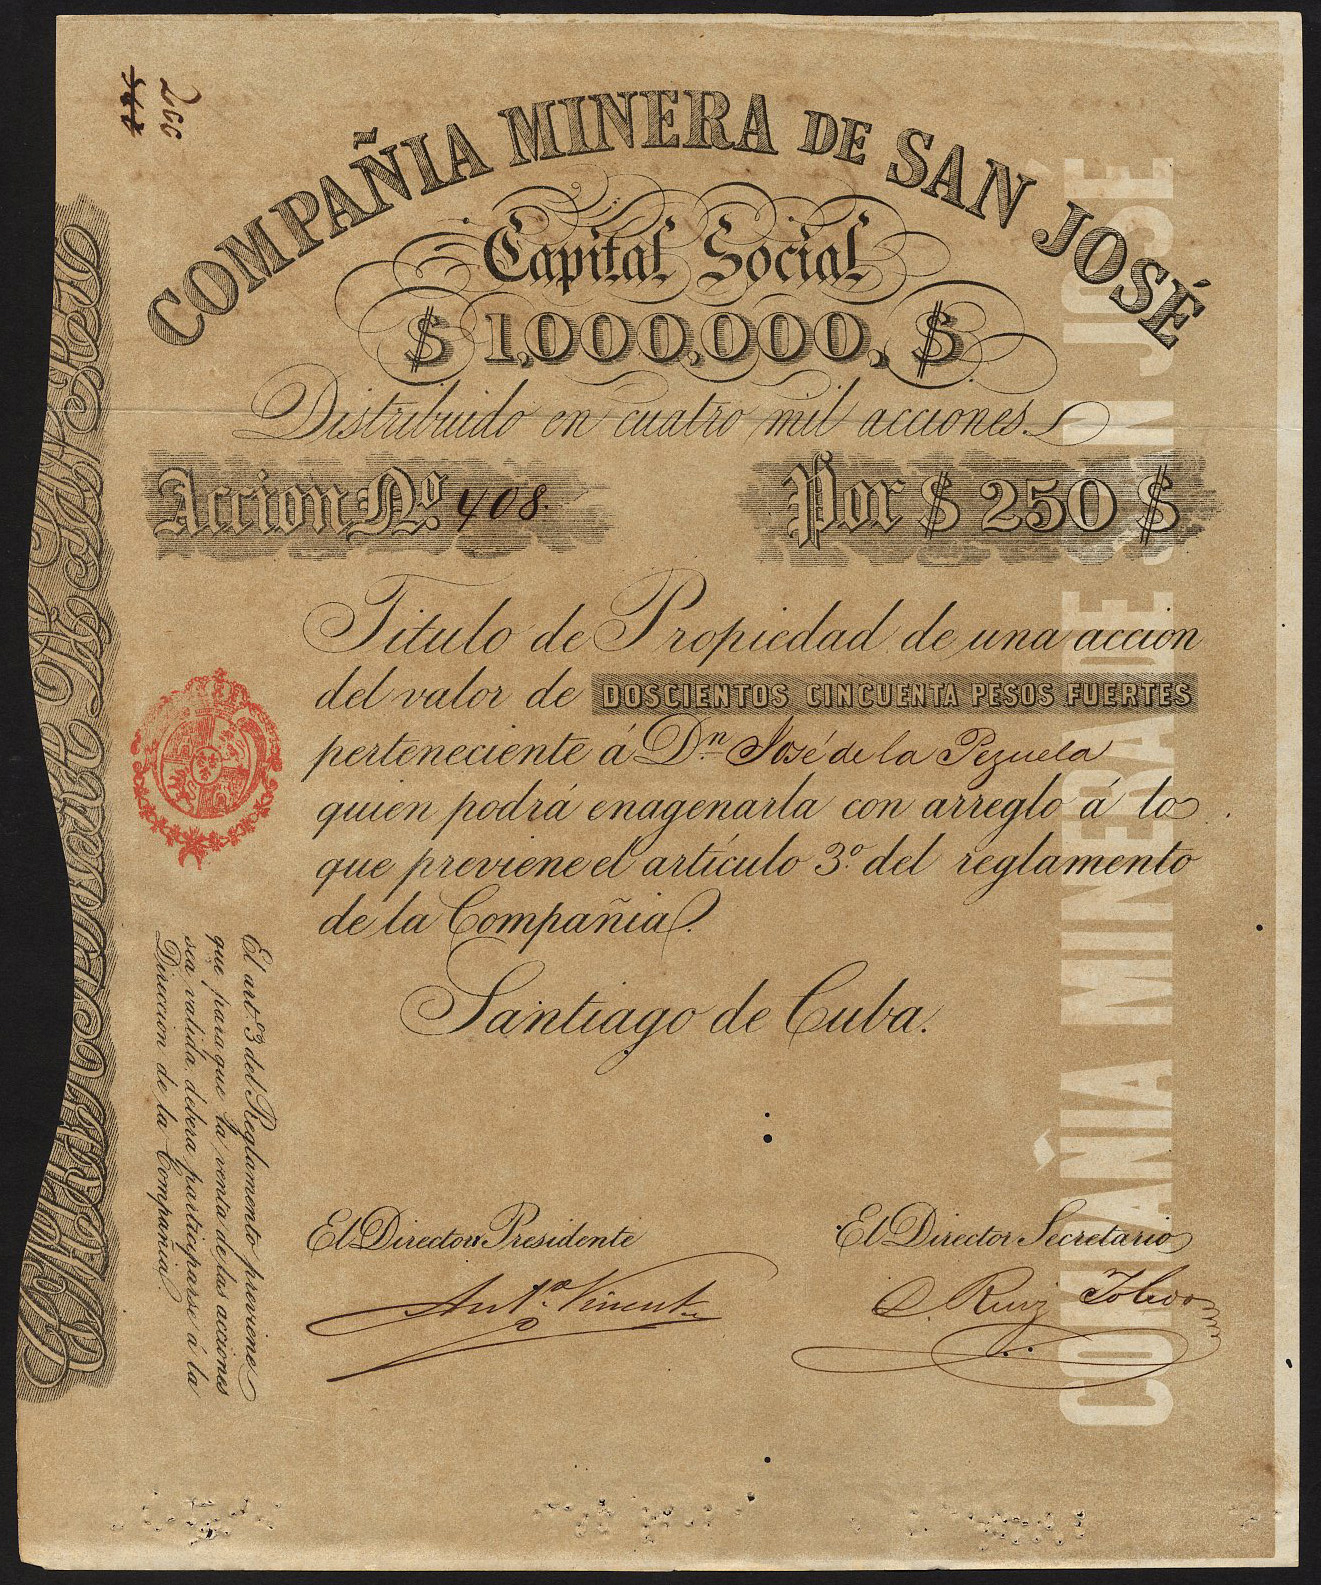 266
COMPAÑIA MINERA DE SAN JOSÉ
Capital Social
$ 1,000,000, $
Distribuido en cuatro mil acciones.
Accion No. 408. Por $ 250 $
Titulo de Propiedad de una accion
del valor de DOSCIENTOS CINCUENTA PESOS FUERTES
perteneciente á Dn. José de la Pezuela
quien podrá enagenarla con arreglo á lo
que previene el artículo 3º. del reglamento
de la Compañia.
Santiago de Cuba.
El Director Presidente El Director Secretario
Anto. Vinent C. Ruiz Toledo
El art. 3 del Reglamento previene
que para que la venta de las acciones
sea valida, debera participarse á la
Direccion de la Compañia
COMPAÑIA MINERA DE SAN JOSÉ